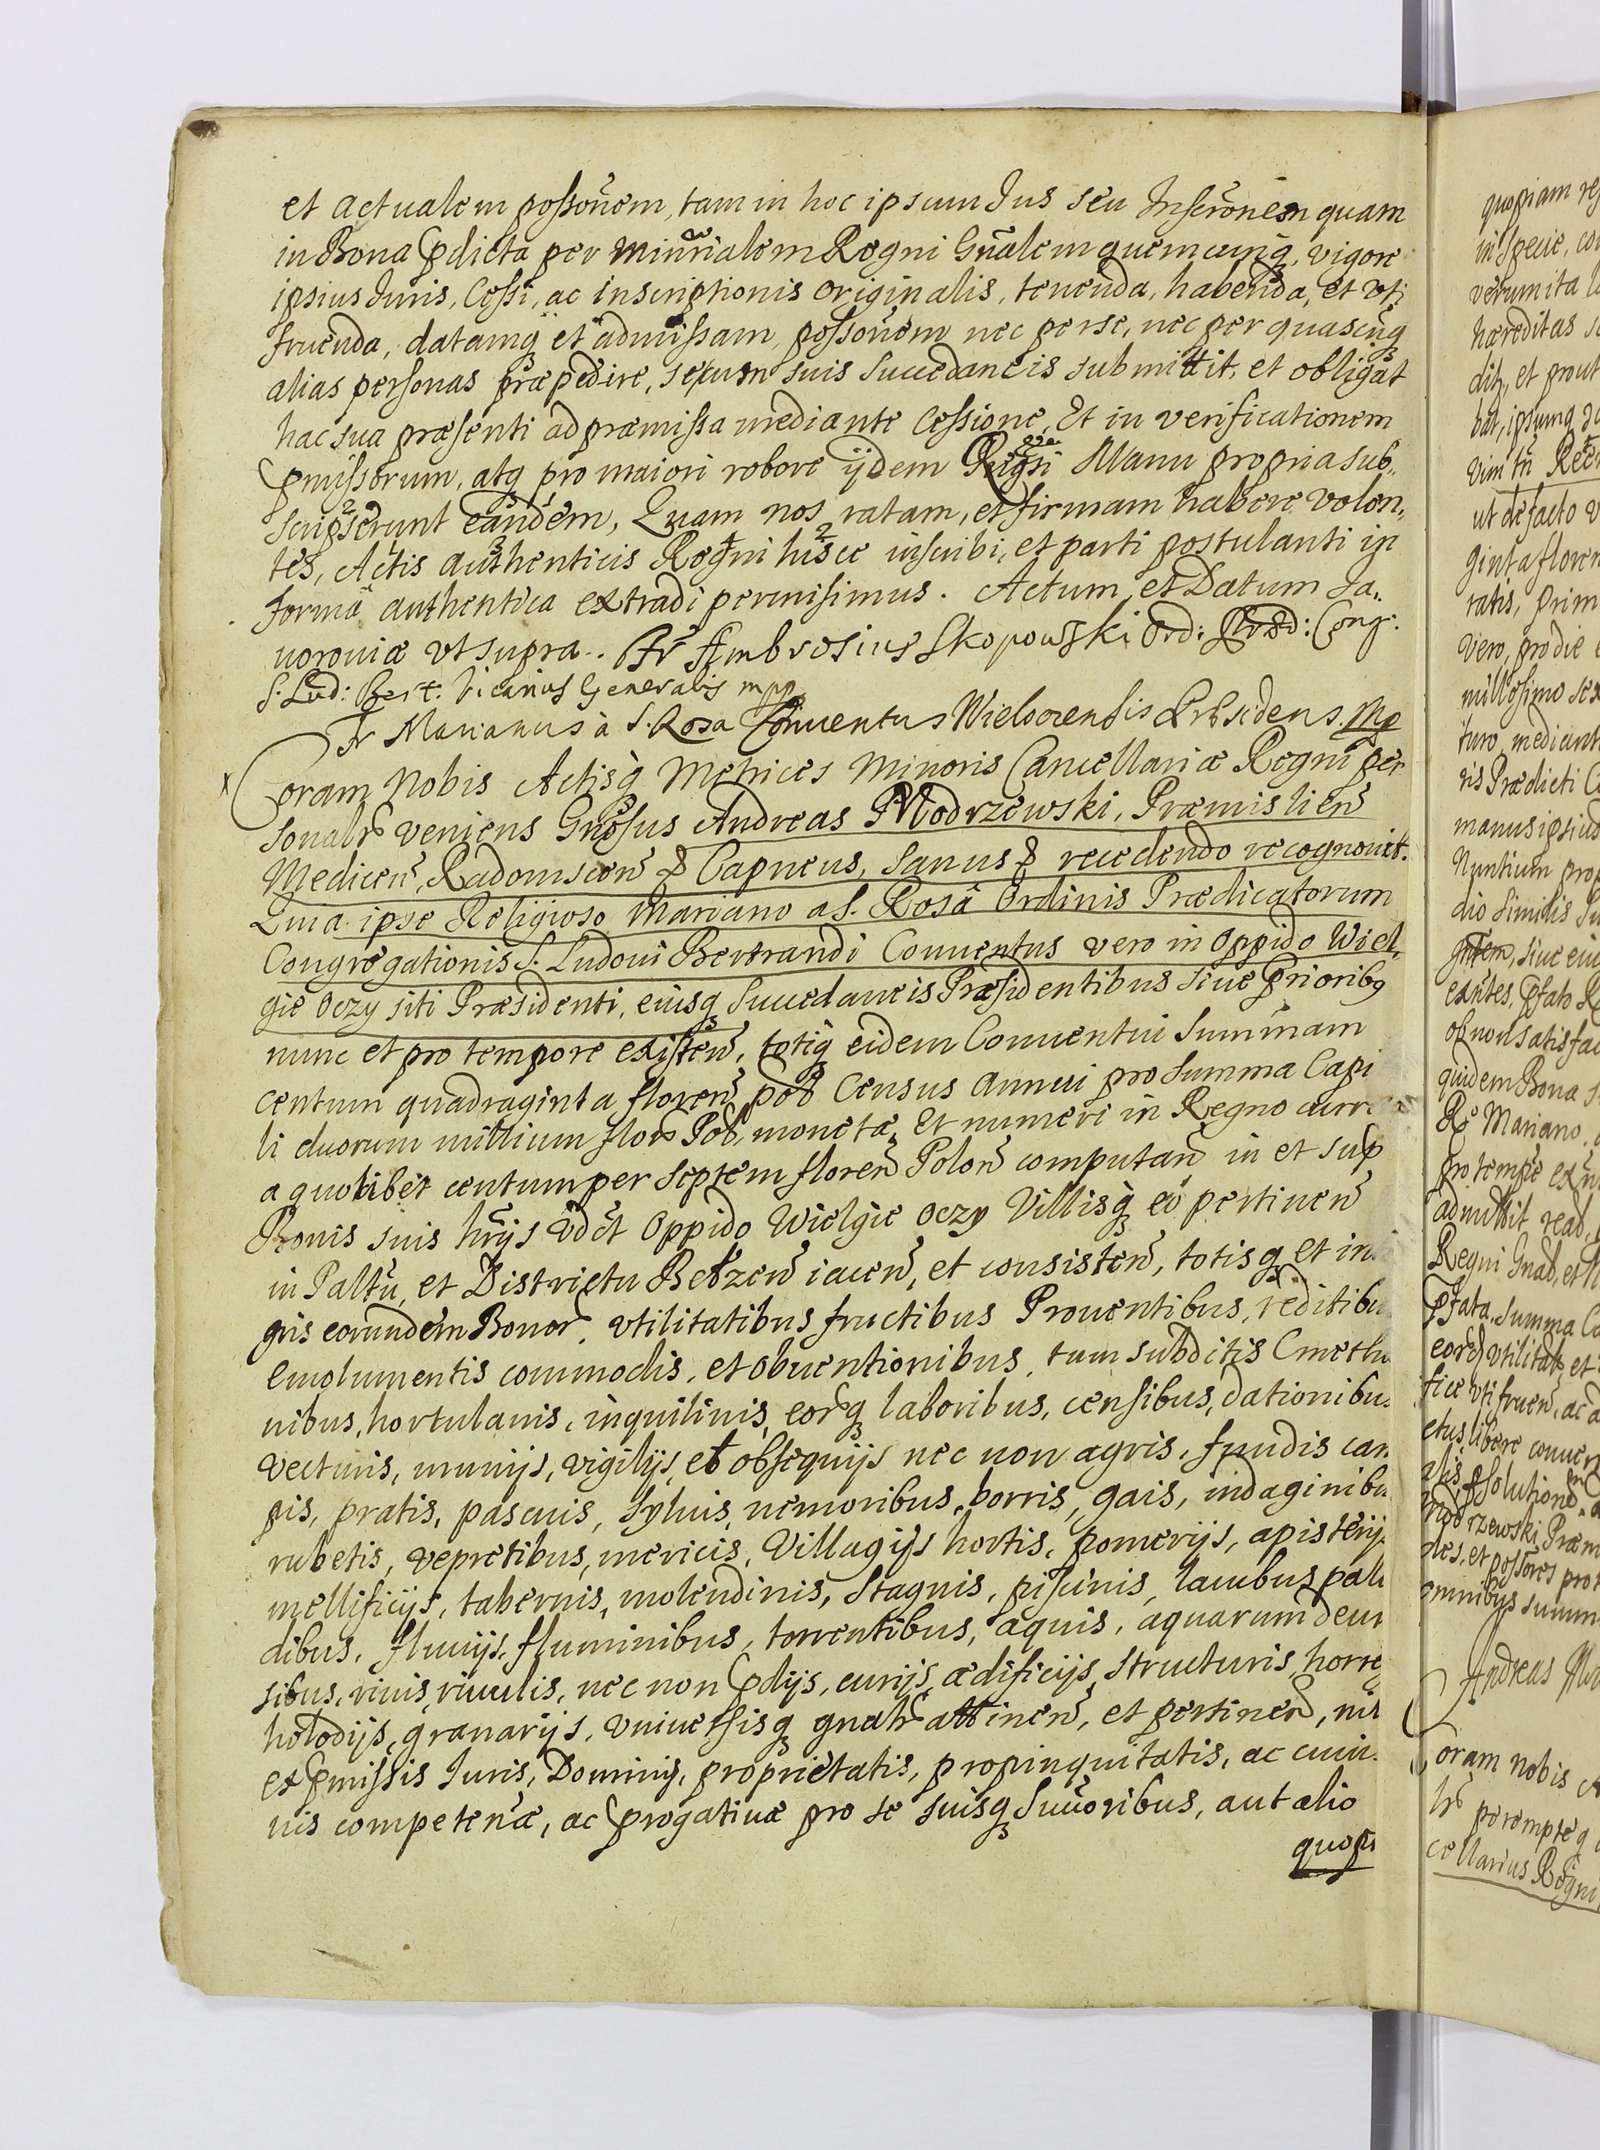 et actualem possoñem, tam in hoc ipsum Jus seu Inscroñem quam
in Bona pdicta per Minrialem Regni Gnalem quemcunq, vigore
ipsius Juris, Cessi, ac inscriptionis originalis, tenenda, habenda, et vti
fruenda, datamq et admissam possoñem nec per se, nec per quascunq
alias personas præpedire, sesum suis succedaneis submittit, et obligat
hac sua præsenti ad præmissa mediante Cessione, Et in verificationem
pmissorum, atq pro maiori robore ijdem Manu propria sub„
scripserunt eandem, Quam nos ratam, et firmam habere volen„
tes, Actis authenticis Regni hisce inscribi, et parti postulanti in
forma authentica extradi permisimus. Actum et Datum Ja„
uoroviæ vt supra. Fr Ambrosius Skopowski Ord: Præd: Cong:
S. Lud: Bert. Vicarius Generalis mpp
Fr Marianus à S. Rosa Conuentus Wielooczensis Præsidens Mp
Coram Nobis Actisq Metrices Minoris Cancellariæ Regni per
sonalr veniens Gnosus Andreas Modrzewski, Præmislien
Medicen, Radomscen & Capneus, sanus & recedendo recognouit.
Quia ipse Religioso Mariano a S. Rosâ Ordinis Prædicatorum
Congregationis S. Ludoui Bertrandi Conuentus vero in Oppido Wiel„
gie Oczy siti Præsidenti, eiusq Succedaneis Præsidentibus siue Prioribq
nunc et pro tempore existen, totiq eidem Conuentui Summam
centum quadraginta floren pol Census annui pro Summa Capi
li duorum millium flor Pol, moneta, Et numeri in Regno curre
a quolibet centum per septem floren Polon computan in et sup
Bonis suis hrijs vdct Oppido Wielgie Oczy Villisq eo pertinen
in Paltu, et Districtu Belzen iacen, et consisten, totisq et in
gris eorundem Bonor, vtilitatibus fructibus Prouentibus, reditibu
emolumentis commodis, et obuentionibus, tum subditis Cmetho
nibus, hortulanis, inquilinis, eorq laboribus, censibus, dationibus
vecturis, munijs, vigilijs, et obsequijs nec non agris, fundis cam
pis, pratis, pascuis, syluis, nemoribus, borris, gais, indaginibu
rubetis, vepretibus, mericis, Villagijs hortis, pomerijs, apisterij
mellificijs, tabernis, molendinis, stagnis, piscinis, lacubus palu
dibus, fluuijs, fluminibus, torrentibus, aquis, aquarum decur
sibus, riuis, riuulis, nec non pdijs, curijs, ædificijs, structuris, horre
holodijs, granarijs, vniuersisq gnalr attinen, et pertinen, nil
ex pmissis Juris, Dominij, proprietatis, propinquitatis, ac cuiu
uis competenæ, ac progatiuæ pro se suisq Succoribus, aut alio
quopi
quopiam res
in specie, con
verum ita l
hæreditas
dit, et prout
bat, ipsumq
vim tñ
ut de facto v
ginta floren
ratis, prim
vero, pro die
millesimo sex
turo, mediant
ris Prædicti C
manus ipsius
Nuntium prop
dio similis
siue eiu
exntes, pfato R
obnon satisfac
quidem Bona s
Re Mariano
pro tempe exn
admittit real
Regni Gnal, et
pfata Summa Ca
eord vtilitat, et
fice vti fruen, ac a
ctus, libere conuen
Modrzewski Præm
des, et possores pro
omnibus summ
Andreas Mo
Coram nobis A
lr perempteq
cellarius Regni